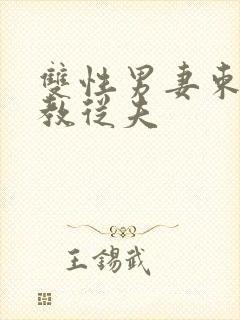 雙性男妻束
教從夫
王錫武